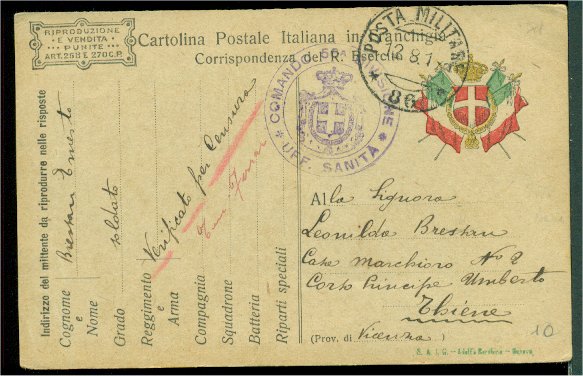 RIPRODUZIONE
E VENDITA
PUNITE
ART. 268 E 270 C.P.
Cartolina Postale Italiana in Franchigia
Corrispondenza del R. Esercito
POSTA MILITARE
12.8.1
86
COMANDO 56ª DIVISIONE
UFF. SANITÀ
Indirizzo del mittente da riprodurre nelle risposte
Cognome e Nome Brestan Ernesto
Grado soldato
Reggimento e Arma
Verificato per Censura
Compagnia
Squadrone
Batteria
Riparti speciali
Alla Signora
Leonilda Brestan
Casa Marchioro No 2
Corso Principe Umberto
Thiene
(Prov. di Vicenza)
10
S. A. I. G. - Adolfo Barabino - Genova